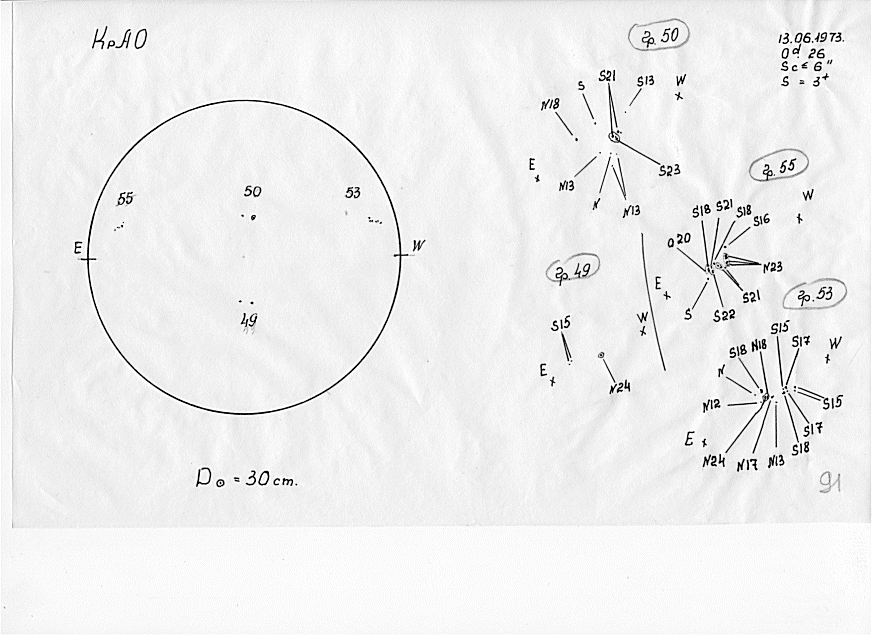 КрАО
13.06.1973.
0d. 26
Sc ≤ 6"
S = 3+
55
50
53
E
W
49
D⊙ = 30 cm.
гр. 50
S
S21
S13
W
N18
E
S23
N13
N
N13
гр. 55
W
S18
S21
S18
S16
020
N23
E
S21
S
S22
гр. 49
S15
W
E
N24
гр. 53
S15
S17
W
S18
N18
N
N12
S15
E
S17
S18
N24
N17
N13
91